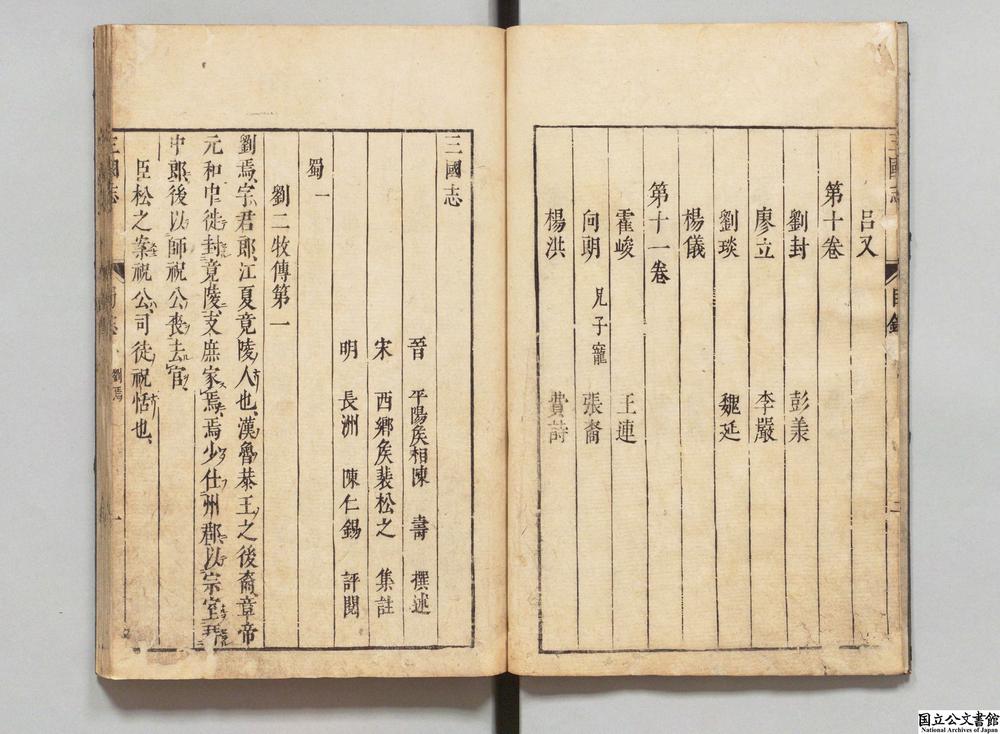 三國志
目錄
二
呂乂
第十卷
劉封 彭羕
廖立 李嚴
劉琰 魏延
楊儀
第十一卷
霍峻 王連
向朗 兄子寵 張裔
楊洪 費詩
三國志
晉 平陽矦相陳 壽 撰述
宋 西鄉矦裴松之 集註
明 長洲 陳仁錫 評閱
蜀一
劉二牧傳第一
劉焉、字君郎、江夏竟陵人也、漢魯恭王之後裔、章帝
元和中、徙封竟陵、支庶家焉、焉少仕州郡、以宗室拜
中郎、後以師祝公喪去官、
臣松之案祝公、司徒祝恬也、
三國志
蜀志
劉焉
一
国立公文書館
National Archives of Japan